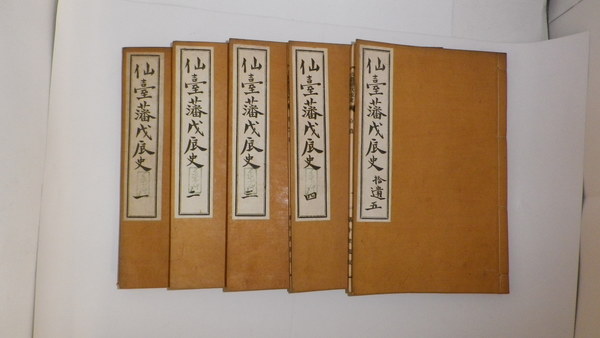 仙臺藩戊辰史 一
仙臺藩戊辰史 二
仙臺藩戊辰史 三
仙臺藩戊辰史 四
仙臺藩戊辰史 拾遺五